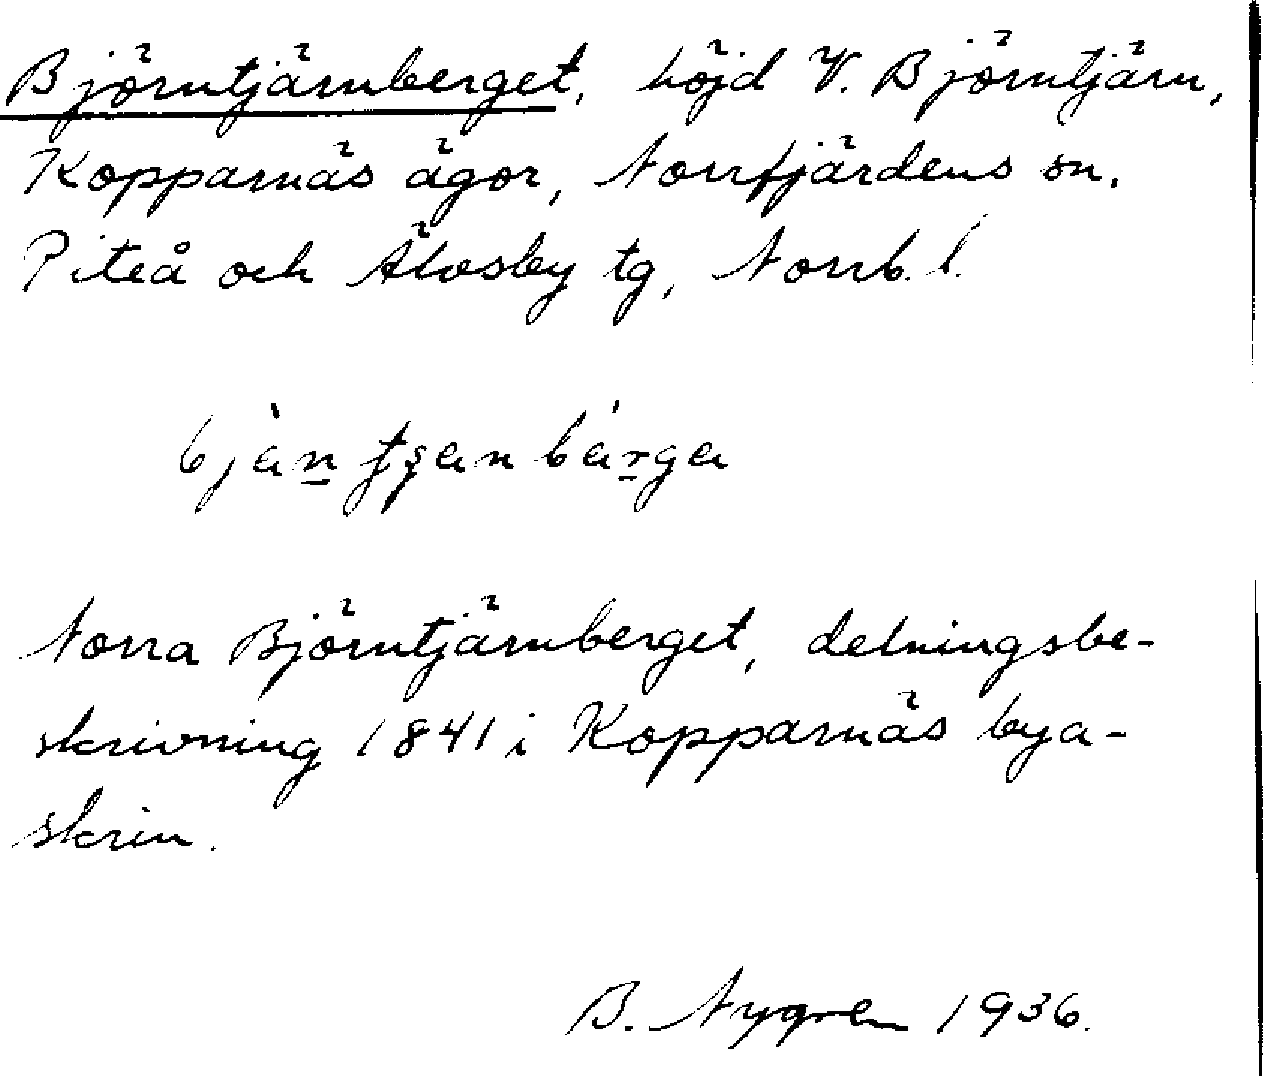 Björntjärnberget, höjd V. Björntjärn,
Kopparnäs ägor, Norrfjärdens sn.
Piteå och Älvsby tg, Norrb. l.
Norra Björntjärnberget, delningsbe-
skrivning 1841 i Kopparnäs bya-
skrin.
B. Nygren 1936.